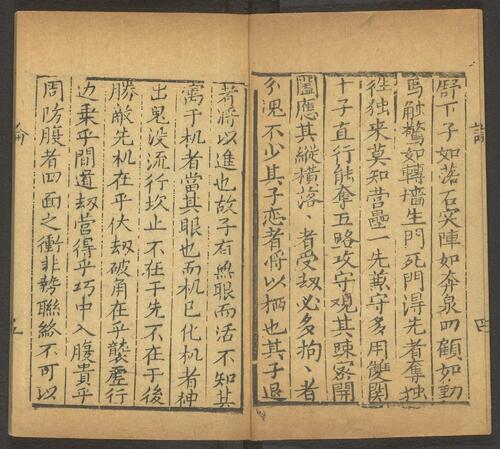 舒下子如落石突陣如奔泉四顧如動
馬触驚如轉墻生門死門得先者奪独
徃独来莫知营壘一先蒹守多用雙関
十子直行能奪五略攻守观其踈密開
阖應其縱横落、者受刼必多拘、者
不少其子恋者將以栖也其子退
者將以進也故子有無眼而活不知其
寓于机者當其眼也而机已化机者神
出鬼没流行坎止不在于先不在于後
勝敵先机在乎伏刼破角在乎襲虚行
边乗乎間道刼营得乎巧中入腹貴乎
周防腹者四面之衝非勢聯絡不可以